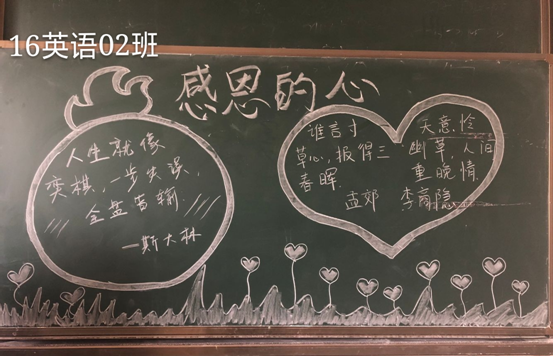 16英语02班
感恩的心
人生就像
奕棋，一步失误，
全盘皆输.
—斯大林
谁言寸
草心，报得三
春晖.
孟郊
天意怜
幽草，人间
重晚情.
李商隐